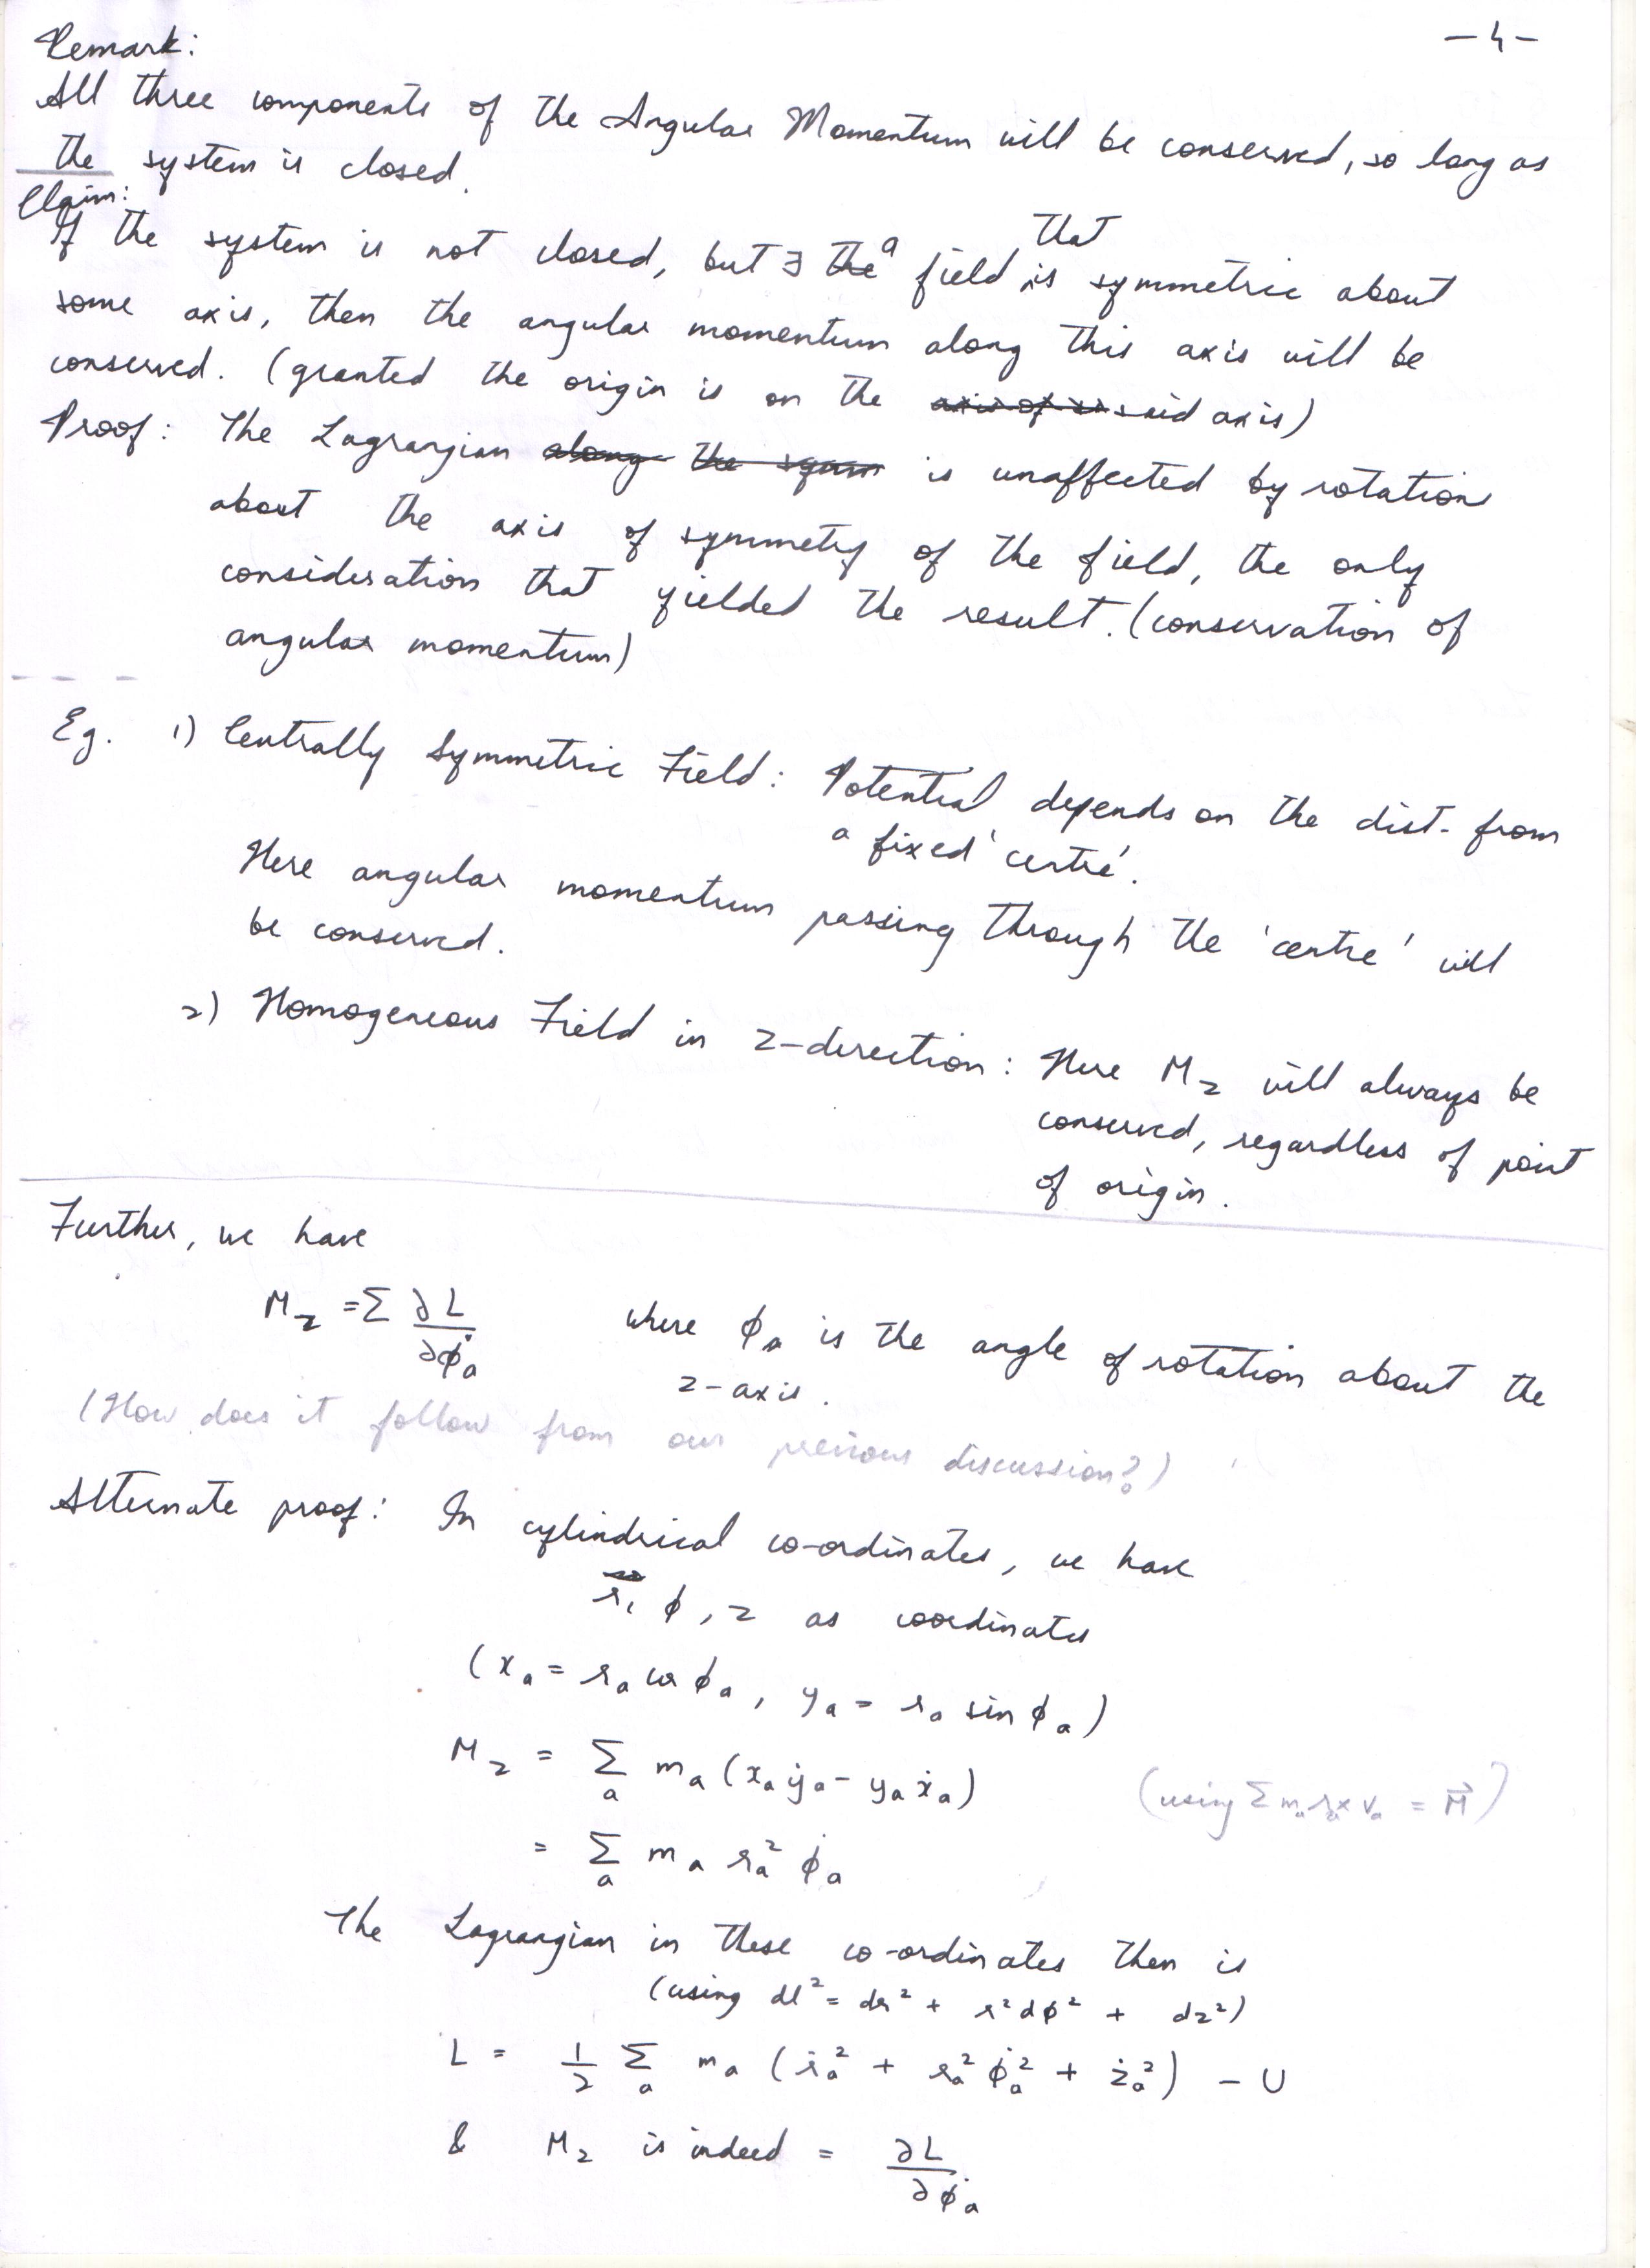 -4-
Remark:
All three components of the Angular Momentum will be conserved, so long as
the system is closed.
Claim:
If the system is not closed, but ∃ the a field, that is symmetric about
some axis, then the angular momentum along this axis will be
conserved. (granted the origin is on the axis of said axis)
Proof: The Lagrangian along the is unaffected by rotation
about the axis of symmetry of the field, the only
consideration that yielded the result. (conservation of
angular momentum)
Eg. 1) Centrally Symmetric Field: Potential depends on the dist. from
a fixed 'centre'.
Here angular momentum passing through the 'centre' will
be conserved.
2) Homogeneous Field in z-direction: Here M_z will always be
conserved, regardless of point
of origin.
Further, we have
M_z = Σ ∂L/∂φ̇_a where φ_a is the angle of rotation about the
z-axis.
(How does it follow from our previous discussion?)
Alternate proof: In cylindrical co-ordinates, we have
r, φ, z as coordinates
(x_a = r_a cos φ_a, y_a = r_a sin φ_a)
M_z = Σ_a m_a (x_a ẏ_a - y_a ẋ_a) (using Σ m_a r_a × v_a = M⃗)
= Σ_a m_a r_a² φ̇_a
The Lagrangian in these co-ordinates then is
(using dl² = dr² + r²dφ² + dz²)
L = 1/2 Σ_a m_a (ṙ_a² + r_a² φ̇_a² + ż_a²) - U
& M_z is indeed = ∂L/∂φ̇_a